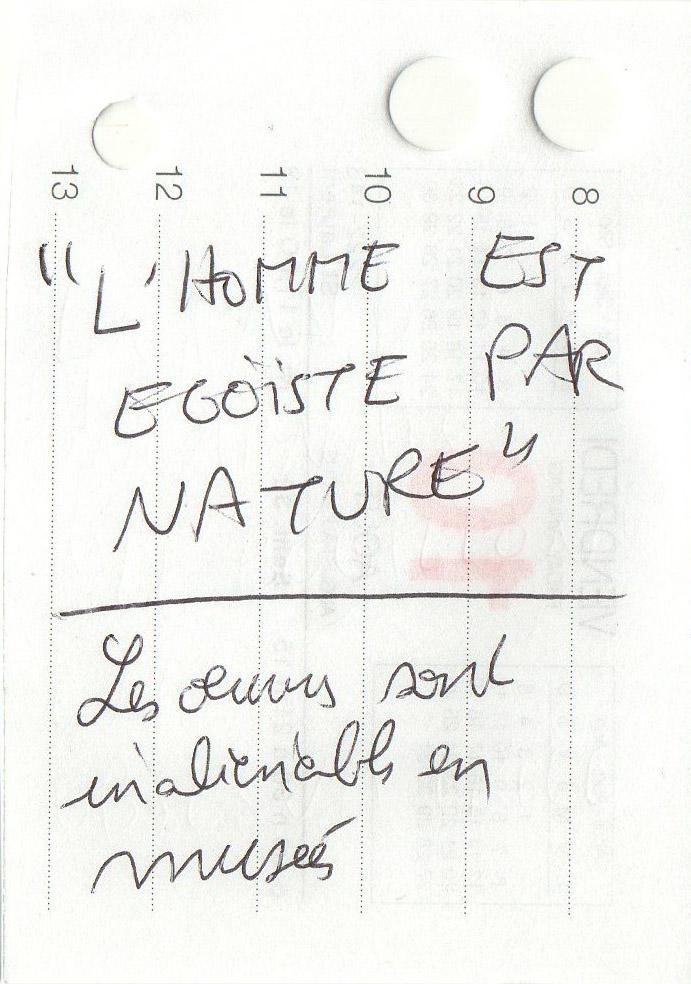 13 12 11 10 9 8
"L'HOMME EST
EGOÏSTE PAR
NATURE"
Les œuvres sont
inaliénables en
musées
10
VENDREDI